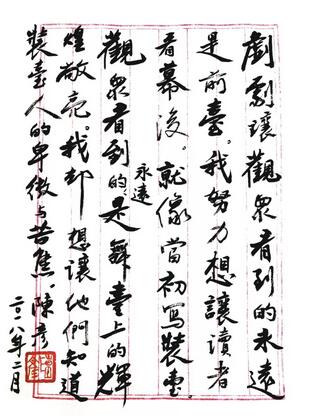 戲劇讓觀衆看到的永遠
是前臺。我努力想讓讀者
看幕後。就像當初寫裝臺。
觀衆看到的永遠是舞臺上的輝
煌敞亮。我却想讓他們知道
裝臺人的卑微与苦焦。陳彦
二〇一八年二月